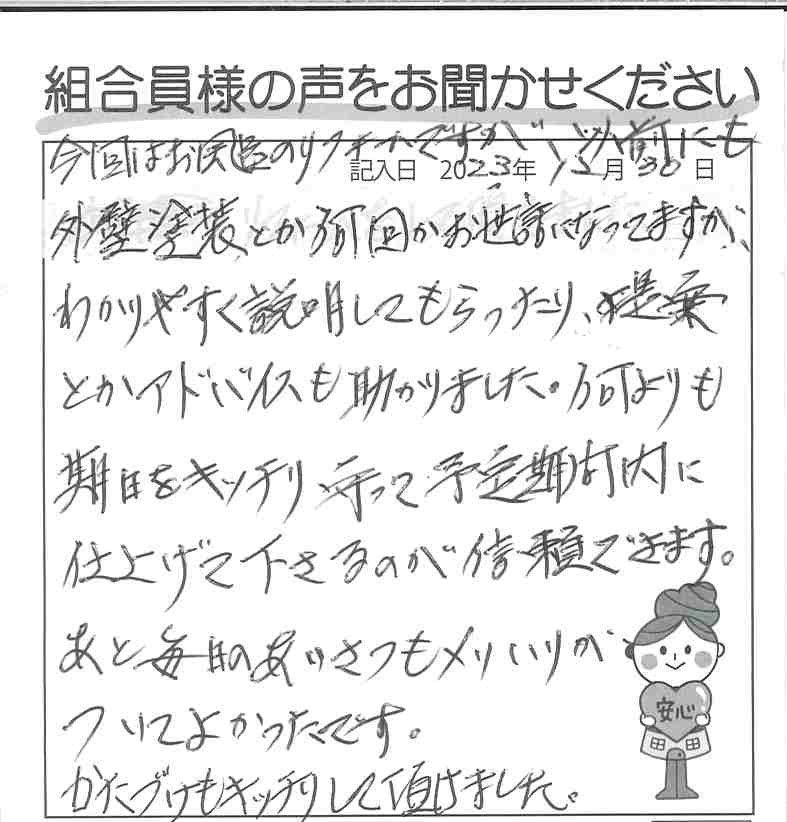 組合員様の声をお聞かせください
今回はお風呂のリフォームですが、以前にも
記入日 2023年 12月 30日
外壁塗装とか何回かお世話になってますが、
わかりやすく説明してもらったり、提案
とかアドバイスも助かりました。何よりも
期日をキッチリ守って予定期間内に
仕上げて下さるのが信頼できます。
あと毎日のあいさつもメリハリが
ついてよかったです。
かたづけもキッチリして頂けました。
安心